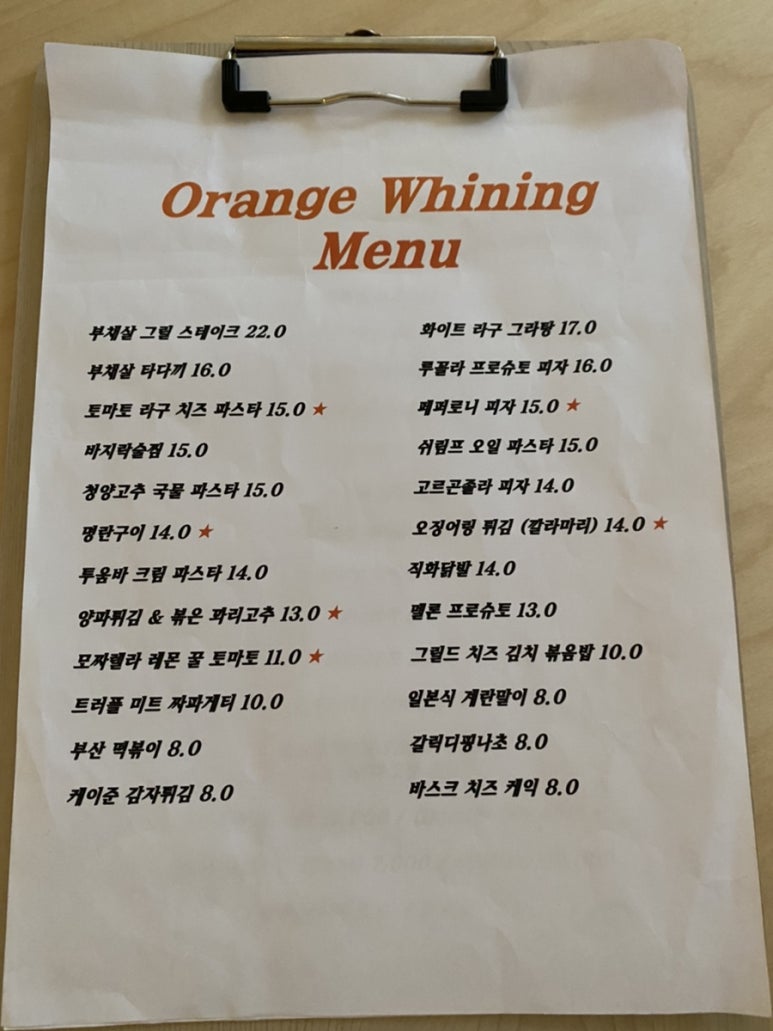 Orange Whining
Menu
부채살 그릴 스테이크 22.0
부채살 타다끼 16.0
토마토 라구 치즈 파스타 15.0 ★
바지락술찜 15.0
청양고추 국물 파스타 15.0
명란구이 14.0 ★
투움바 크림 파스타 14.0
양파튀김 & 볶은 꽈리고추 13.0 ★
모짜렐라 레몬 꿀 토마토 11.0 ★
트러플 미트 짜파게티 10.0
부산 떡볶이 8.0
케이준 감자튀김 8.0
화이트 라구 그라탕 17.0
루꼴라 프로슈토 피자 16.0
페퍼로니 피자 15.0 ★
쉬림프 오일 파스타 15.0
고르곤졸라 피자 14.0
오징어링 튀김 (깔라마리) 14.0 ★
직화닭발 14.0
멜론 프로슈토 13.0
그릴드 치즈 김치 볶음밥 10.0
일본식 계란말이 8.0
갈릭디핑나초 8.0
바스크 치즈 케익 8.0